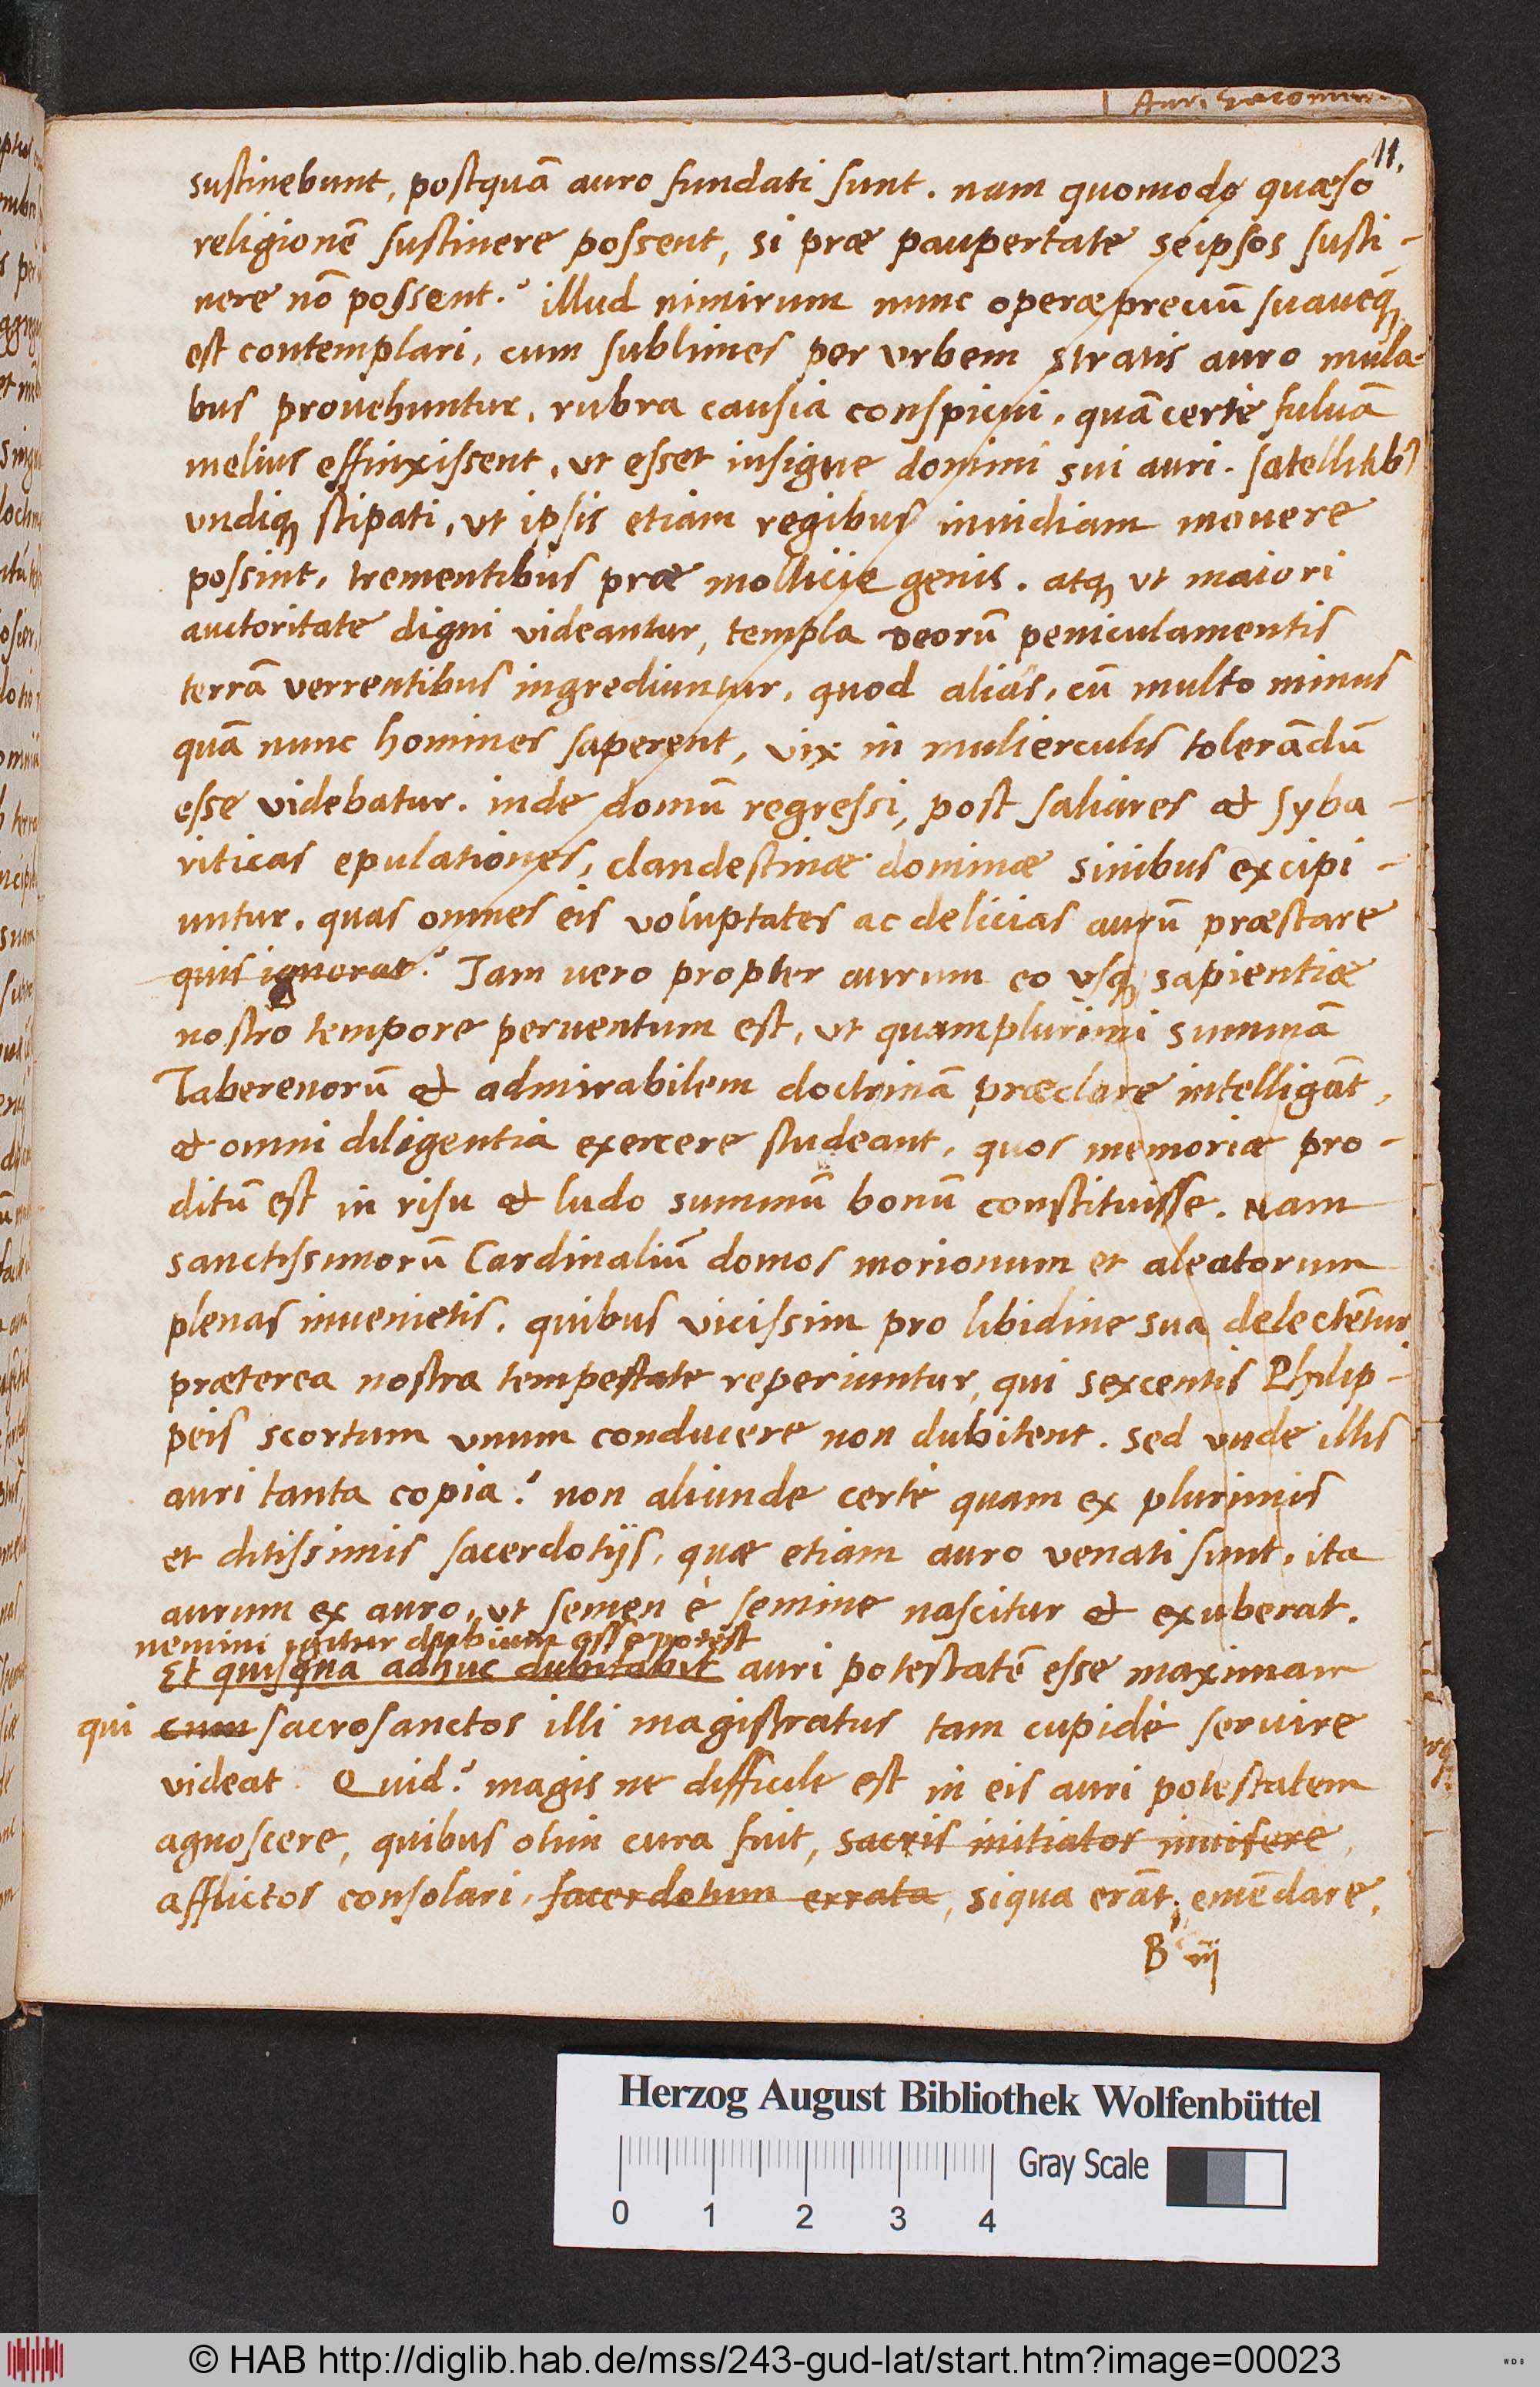 11.
sustinebunt, postquā auro fundati sunt. nam quomodo quæso
religionē sustinere possent, si præ paupertate seipsos susti-
nere nō possent? illud nimirum nunc operæpreciū suaueq́
est contemplari, cum sublimes per vrbem stratis auro mula-
bus prouehuntur, rubra causia conspicui, quā certè fuluā
melius effinxissent, vt esset insigne domini sui auri. satellitib'
vndiq́ stipati, vt ipsis etiam regibus inuidiam mouere
possint, trementibus præ mollicie genis. atq́ vt maiori
auctoritate digni videantur, templa deorū peniculamentis
terrā verrentibus ingrediuntur, quod aliàs, cū multo minus
quā nunc homines saperent, vix in mulierculis tolerādū
esse videbatur. inde domū regressi, post saliares & Syba-
riticas epulationes, clandestinæ dominæ sinibus excipi-
untur. quas omnes eis voluptates ac delicias aurū præstare
quis ignorat? Iam uero propter aurum eo vsq́ sapientiæ
nostro tempore peruentum est, vt quamplurimi summā
Taberenorū & admirabilem doctrinā præclare intelligāt,
& omni diligentia exercere studeant, quos memoriæ pro-
ditū est in risu & ludo summū bonū constituisse. Nam
sanctissimorū Cardinaliū domos morionum et aleatorum
plenas inuenietis, quibus vicissim pro libidine sua delectētur
præterea nostra tempestate reperiuntur, qui sexcentis Philip-
peis scortum vnum conducere non dubitent. Sed vnde illis
auri tanta copia? non aliunde certè quam ex plurimis
et ditissimis sacerdotijs, quæ etiam auro venati sunt. ita
aurum ex auro, vt semen è semine nascitur & exuberat.
nemini igitur dubium esse potest
Et quisqua adhuc dubitabit auri potestatē esse maximam
qui cum sacrosanctos illi magistratus tam cupidè seruire
videat. Quid? magis ne difficile est in eis auri potestatem
agnoscere, quibus olim cura fuit, sacris initiatos inuisere,
afflictos consolari, sacerdotum errata, siqua erāt, emēdare,
B iij
Herzog August Bibliothek Wolfenbüttel
Gray Scale
0 1 2 3 4
© HAB http://diglib.hab.de/mss/243-gud-lat/start.htm?image=00023